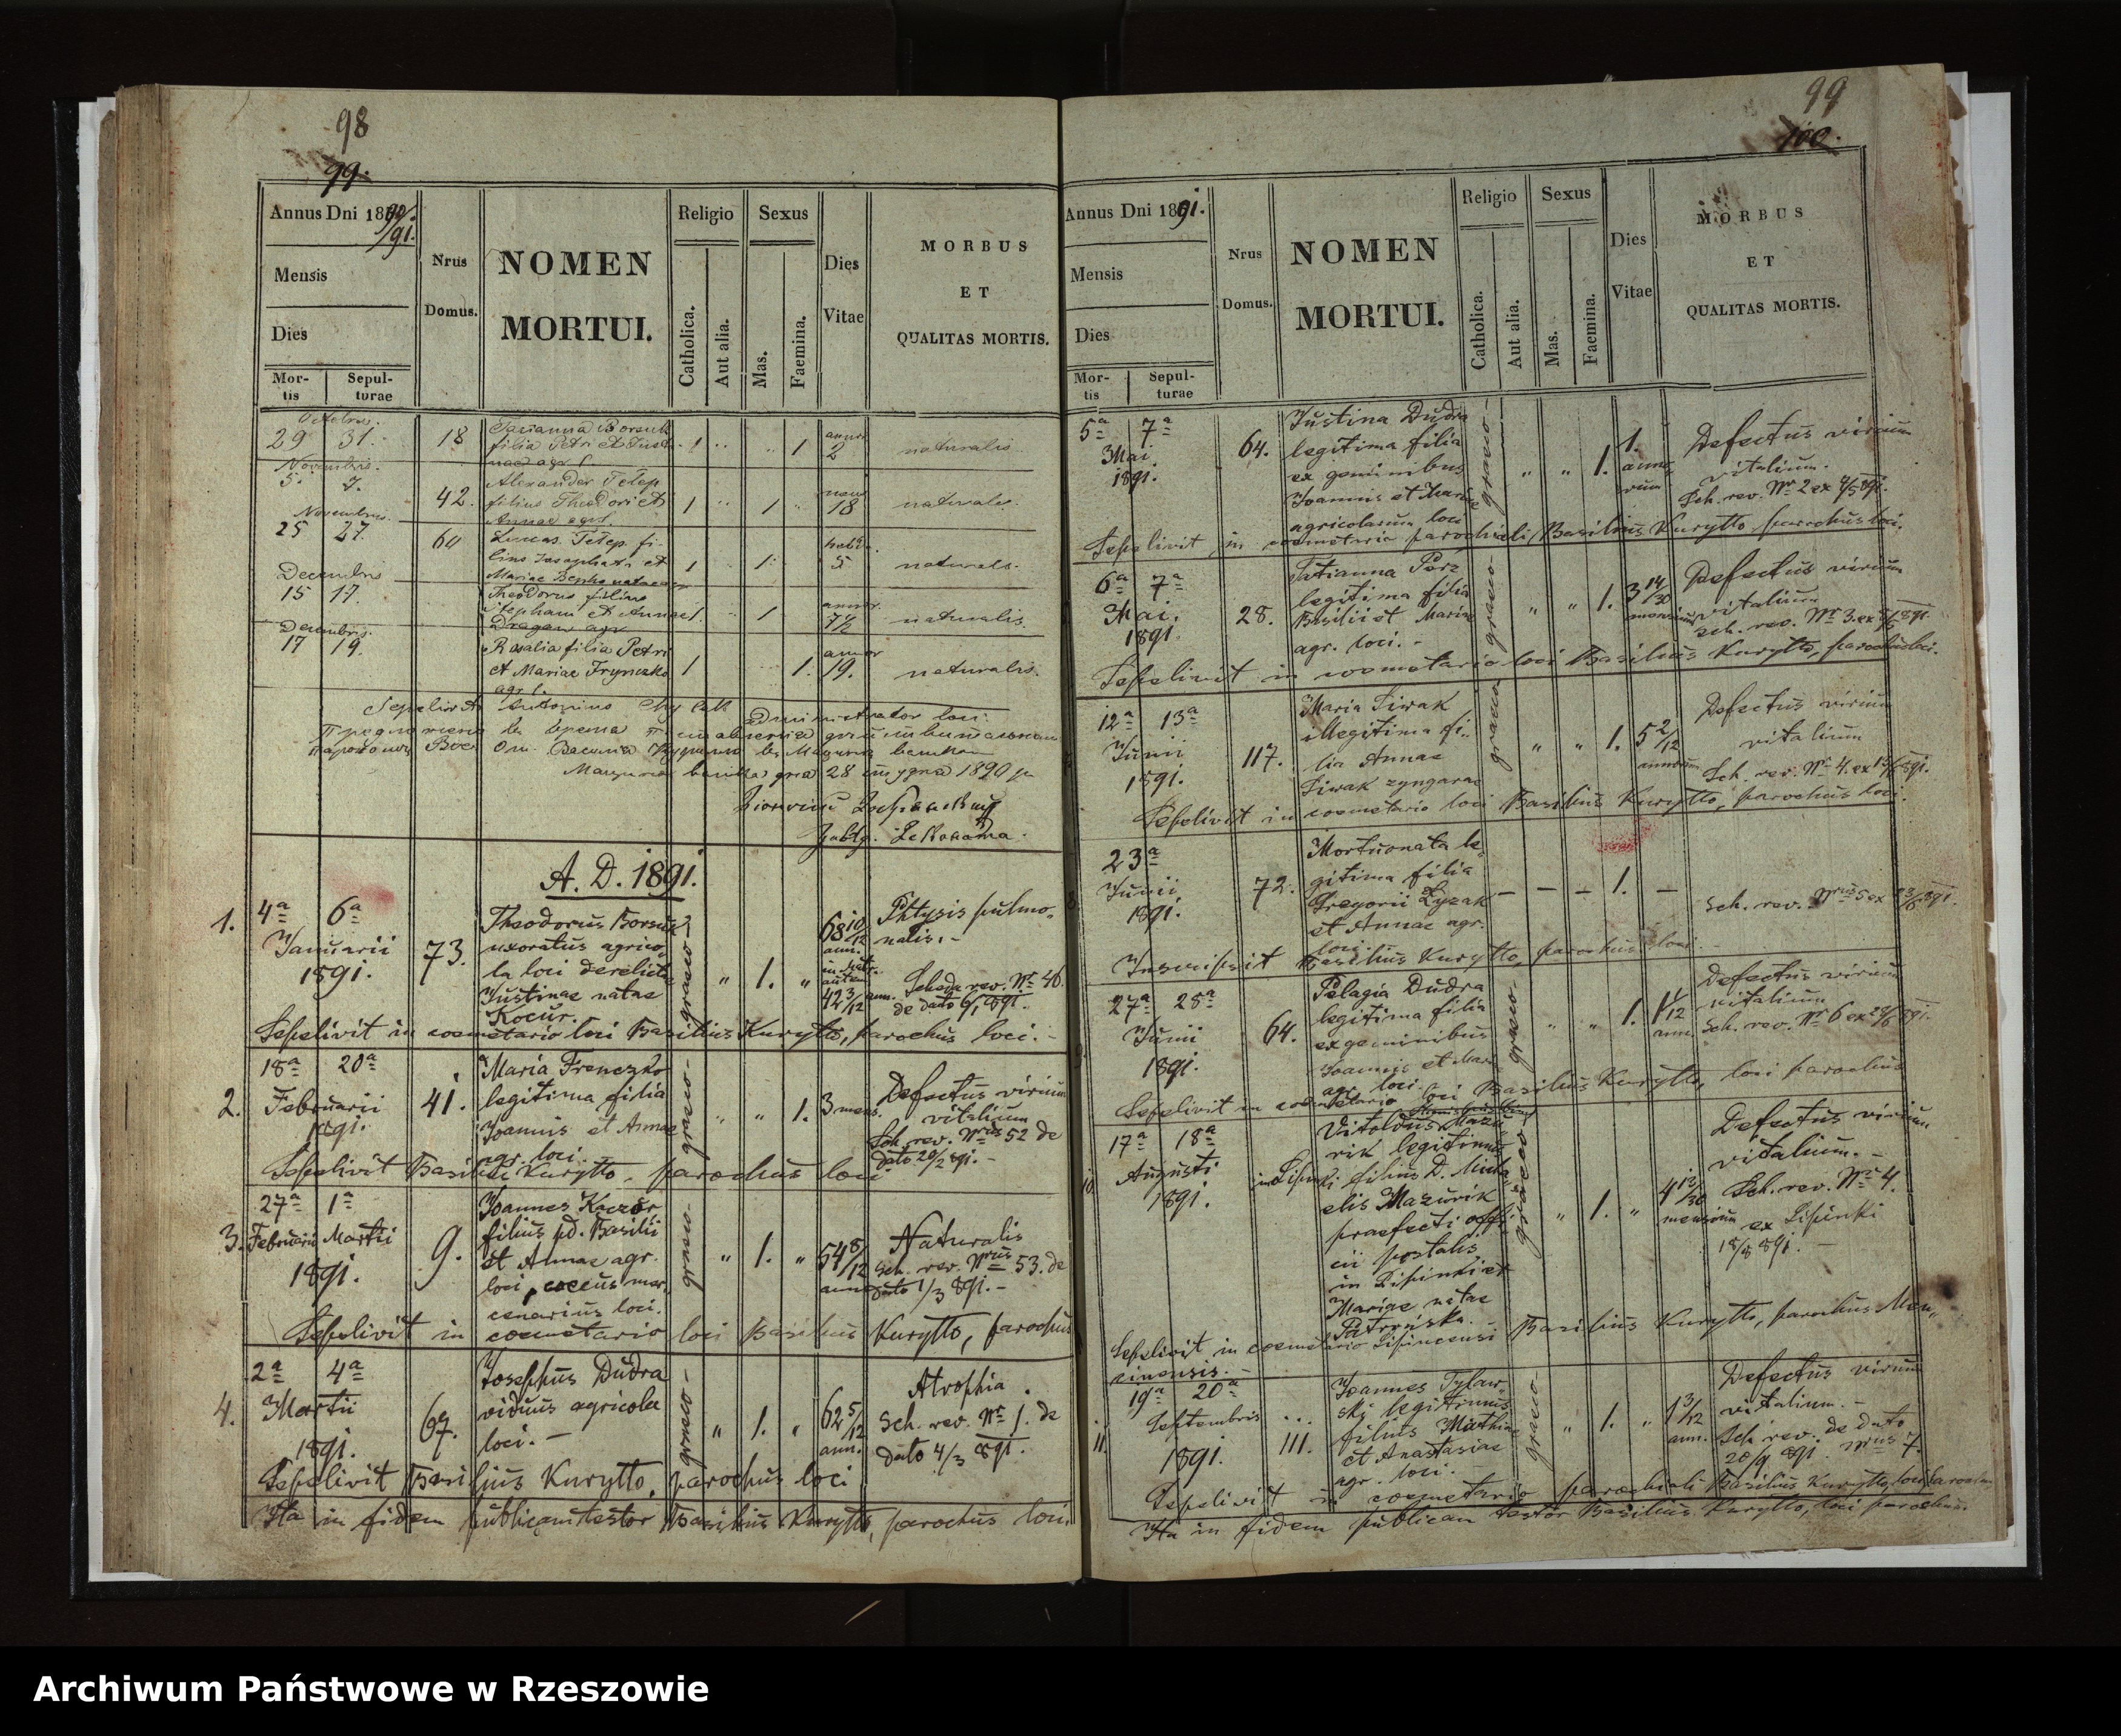 98
99.
Annus Dni 1890/91.
Mensis
Dies
Mortis
Sepulturae
Nrus Domus.
NOMEN
MORTUI.
Religio
Catholica.
Aut alia.
Sexus
Mas.
Faemina.
Dies
Vitae
MORBUS
ET
QUALITAS MORTIS.
Octobris.
29 31. 18 Borsuk 1 1 2 naturalis
filia Petri et
Novembris.
5. 7. 42. Alexander Telep 1 1 18 naturalis.
filius Theodori et
Annae agr.
Novembris
25 27. 60 Lucas Telep fi-
lius Josaphati et 1 1. 5 naturals.
Mariae
Decembris
15 17. Theodorus filius
Stephani et Annae 1. 1 7½ naturalis
Dragan agr
Decembris.
17 19. Rosalia filia Petri
et Mariae Frynczko 1 1. 19. naturalis.
agr l.
administrator loci.
28 1890
A. D. 1891.
1. 4a 6a Theodorus Borsuk Phtysis pulmo-
Januarii 73. uxoratus agrico- graeco " 1. " 68 10/12 nalis. -
1891. la loci derelicta ann.
Justinae natae 42 3/12 ann. Scheda rev. Nr 46.
Kocur. de dato 6/1 891.
Sepelivit in coemetario loci Basilius Kurytto, parochus loci. -
2. 18a 20a Maria Frenczko Defectus virium
Februarii 41. legitima filia graeco " " 1. 3 mens. vitalium
1891. Joannis et Annae Sch. rev. Nrus 52 de
agr. loci. dato 20/2 891. -
Sepelivit Basilius Kurytto, parochus loci
3. 27a 1a Joannes Kaczor
Februarii Martii 9. filius pd. Basilii graeco " 1. " 54 8/12 Naturalis
1891. et Annae agr. Sch. rev. Nrus 53. de
loci, coecus mer- dato 1/3 891. -
cenarius loci.
Sepelivit in coemetario loci Basilius Kurytto, parochus
4. 2a 4a Josephus Dudra Atrophia.
Martii 67. viduus agricola graeco " 1. " 62 5/12 Sch. rev. Nr 1. de
1891. loci. - ann. dato 4/3 891. -
Sepelivit Basilius Kurytto, parochus loci
Ita in fidem publicam testor Basilius Kurytto, parochus loci
99
100.
Annus Dni 1891.
Mensis
Dies
Mortis
Sepulturae
Nrus
Domus.
NOMEN
MORTUI.
Religio
Catholica.
Aut alia.
Sexus
Mas.
Faemina.
Dies
Vitae
MORBUS
ET
QUALITAS MORTIS.
5a 7a Justina Dudra
Mai 64. legitima filia graeco " " 1. 1. Defectus virium
1891. ex geminibus vitalium.
Joannis et Mariae Sch. rev. Nr 2 ex 7/5 891.
agricolarum loci
Sepelivit in coemetario parochiali Basilius Kurytto parochus loci.
6a 7a Tatianna Perz
Mai. 28. legitima filia graeco " " 1. 3 14/30 Defectus virium
1891. Basilii et Mariae mensium vitalium
agr. loci. - Sch. rev. Nr 3. ex 7/5 891.
Sepelivit in coemetario loci Basilius Kurytto, parochus loci.
12a 13a Maria Siwak Defectus virium
Junii 117. illegitima fi- graeco " " 1. 5 2/12 vitalium
1891. lia Annae annorum
Siwak zyngarae Sch. rev. Nr 4. ex 13/6 891.
Sepelivit in coemetario loci Basilius Kurytto, parochus loci.
8 23a Mortuonata le-
Junii 72. gitima filia - - - 1. -
1891. Gregorii Łyzak Sch. rev. Nrus 5 ex 23/6 891.
et Annae agr.
loci.
Inscripsit Basilius Kurytto, parochus loci. -
9. 27a 28a Pelagia Dudra Defectus virium
Junii 64. legitima filia graeco " " 1. 1 1/12 vitalium
1891. ex geminibus ann. Sch. rev. Nr 6 ex 28/6 891.
Joannis et Mariae
agr. loci.
Sepelivit in coemetario loci Basilius Kurytto, loci parochus
10. 17a 18a Vitoldus Mazu-
Augusti in Lipinki rik legitimus Defectus virium
1891. filius D. Micha- graeco " 1. " 4 13/30 vitalium. -
elis Mazurik mensium Sch. rev. Nr 4.
praefecti offi- ex Lipinki
cii postalis 18/8 891. -
in Lipinki et
Mariae natae
Patrońska.
Sepelivit in coemetario Lipincensi Basilius Kurytto, parochus Men-
cinensis. -
11. 19a 20a Joannes Tylaw-
Septembris ... ski legitimus Defectus virium
1891. 111. filius Mathiae graeco " 1. " 1 3/12 vitalium. -
et Anastasiae ann. Sch. rev. de dato
agr. loci. - 20/9 891. Nrus 7.
Sepelivit in coemetario parochiali Basilius Kurytto, loci parochus
Ita in fidem publicam testor Basilius Kurytto, loci parochus.
Archiwum Państwowe w Rzeszowie